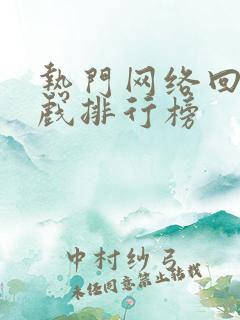 熱門网络回
戲排行榜
中村纱弓
未经同意禁止转载